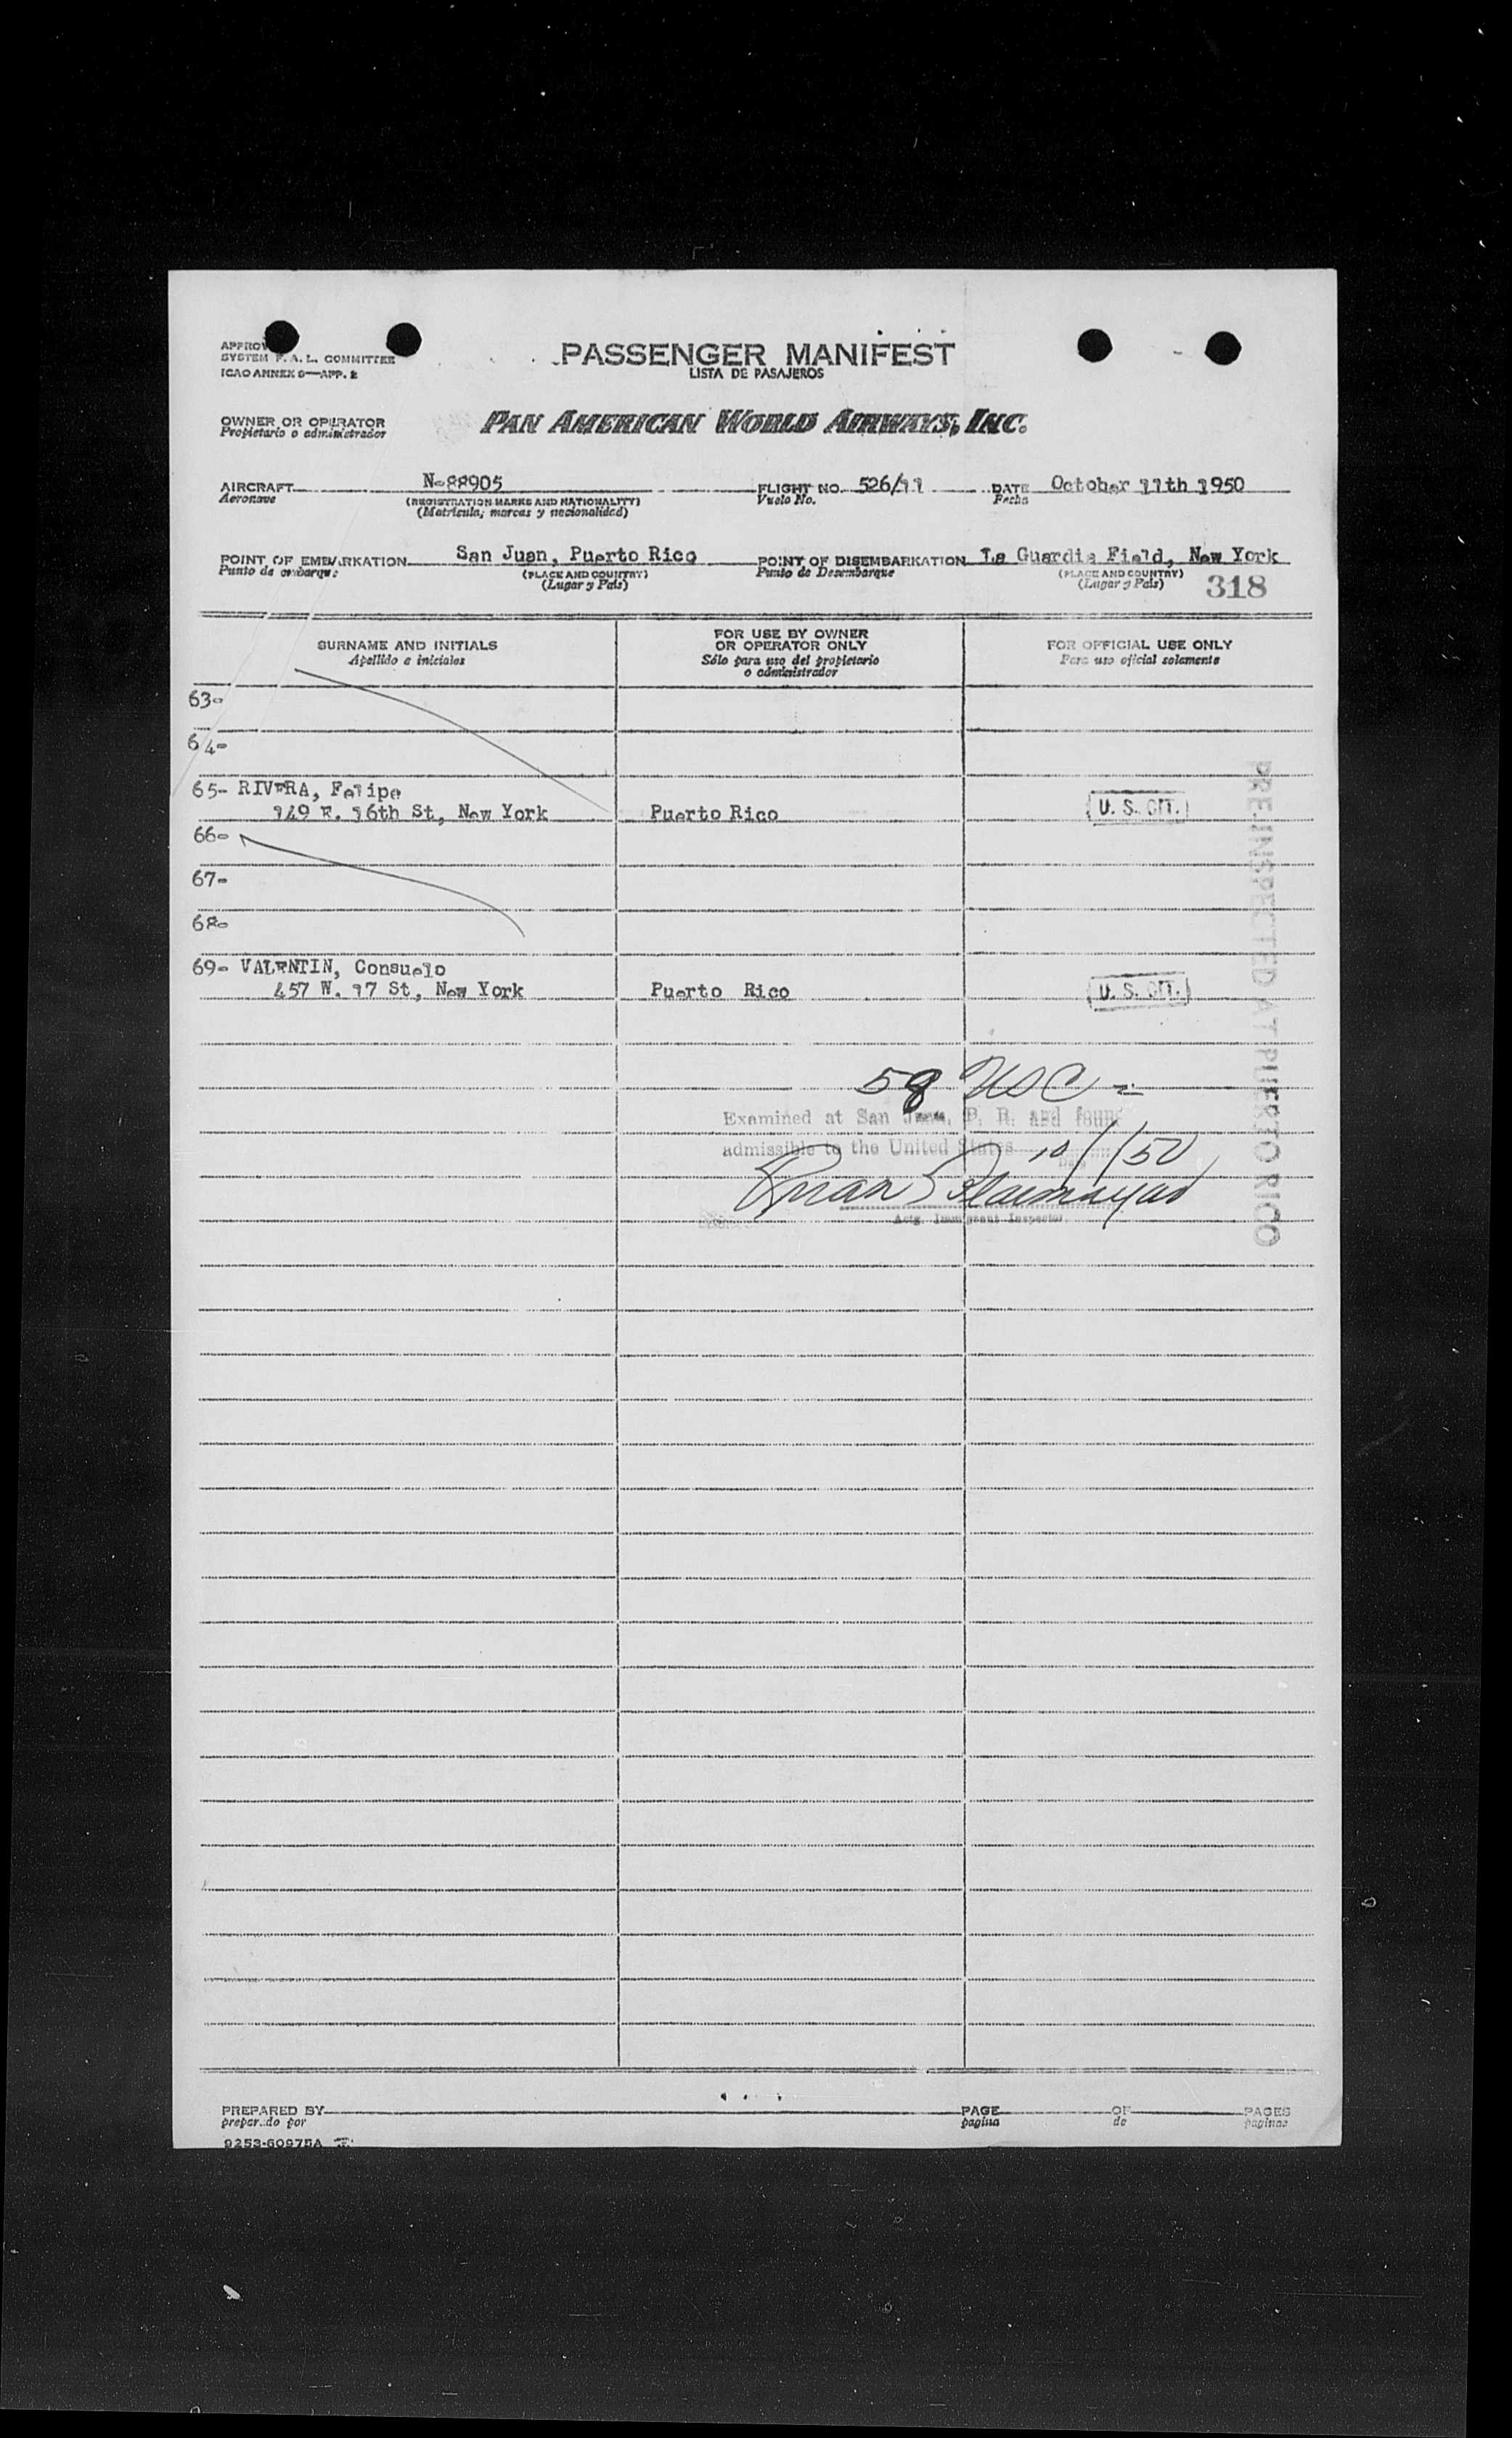 SYSTEM F. A. L. COMMITTEE
ICAO ANNEX 9—APP. 2
PASSENGER MANIFEST
LISTA DE PASAJEROS
OWNER OR OPERATOR
Propietario o administrador
PAN AMERICAN WORLD AIRWAYS, INC.
AIRCRAFT N-88905 FLIGHT NO. 526/11 DATE October 11th 1950
Aeronave (REGISTRATION MARKS AND NATIONALITY) Vuelo No. Fecha
(Matrícula, marcas y nacionalidad)
POINT OF EMBARKATION San Juan, Puerto Rico POINT OF DISEMBARKATION La Guardia Field, New York
Punto de embarque (PLACE AND COUNTRY) Punto de Desembarque (PLACE AND COUNTRY)
(Lugar y País) (Lugar y País) 318
SURNAME AND INITIALS
Apellido e iniciales
FOR USE BY OWNER
OR OPERATOR ONLY
Sólo para uso del propietario
o administrador
FOR OFFICIAL USE ONLY
Para uso oficial solamente
63-
64-
65- RIVERA, Felipe
149 E. 16th St, New York Puerto Rico U. S. CIT.
66-
67-
68-
69- VALENTIN, Consuelo
457 W. 17 St, New York Puerto Rico U. S. CIT.
PRE-INSPECTED AT PUERTO RICO
58 USC
Examined at San Juan, P. R. and found
admissible to the United States 10/ /50
Actg. Immigrant Inspector
PREPARED BY PAGE OF PAGES
preparado por pagina de paginas
9253-60975A